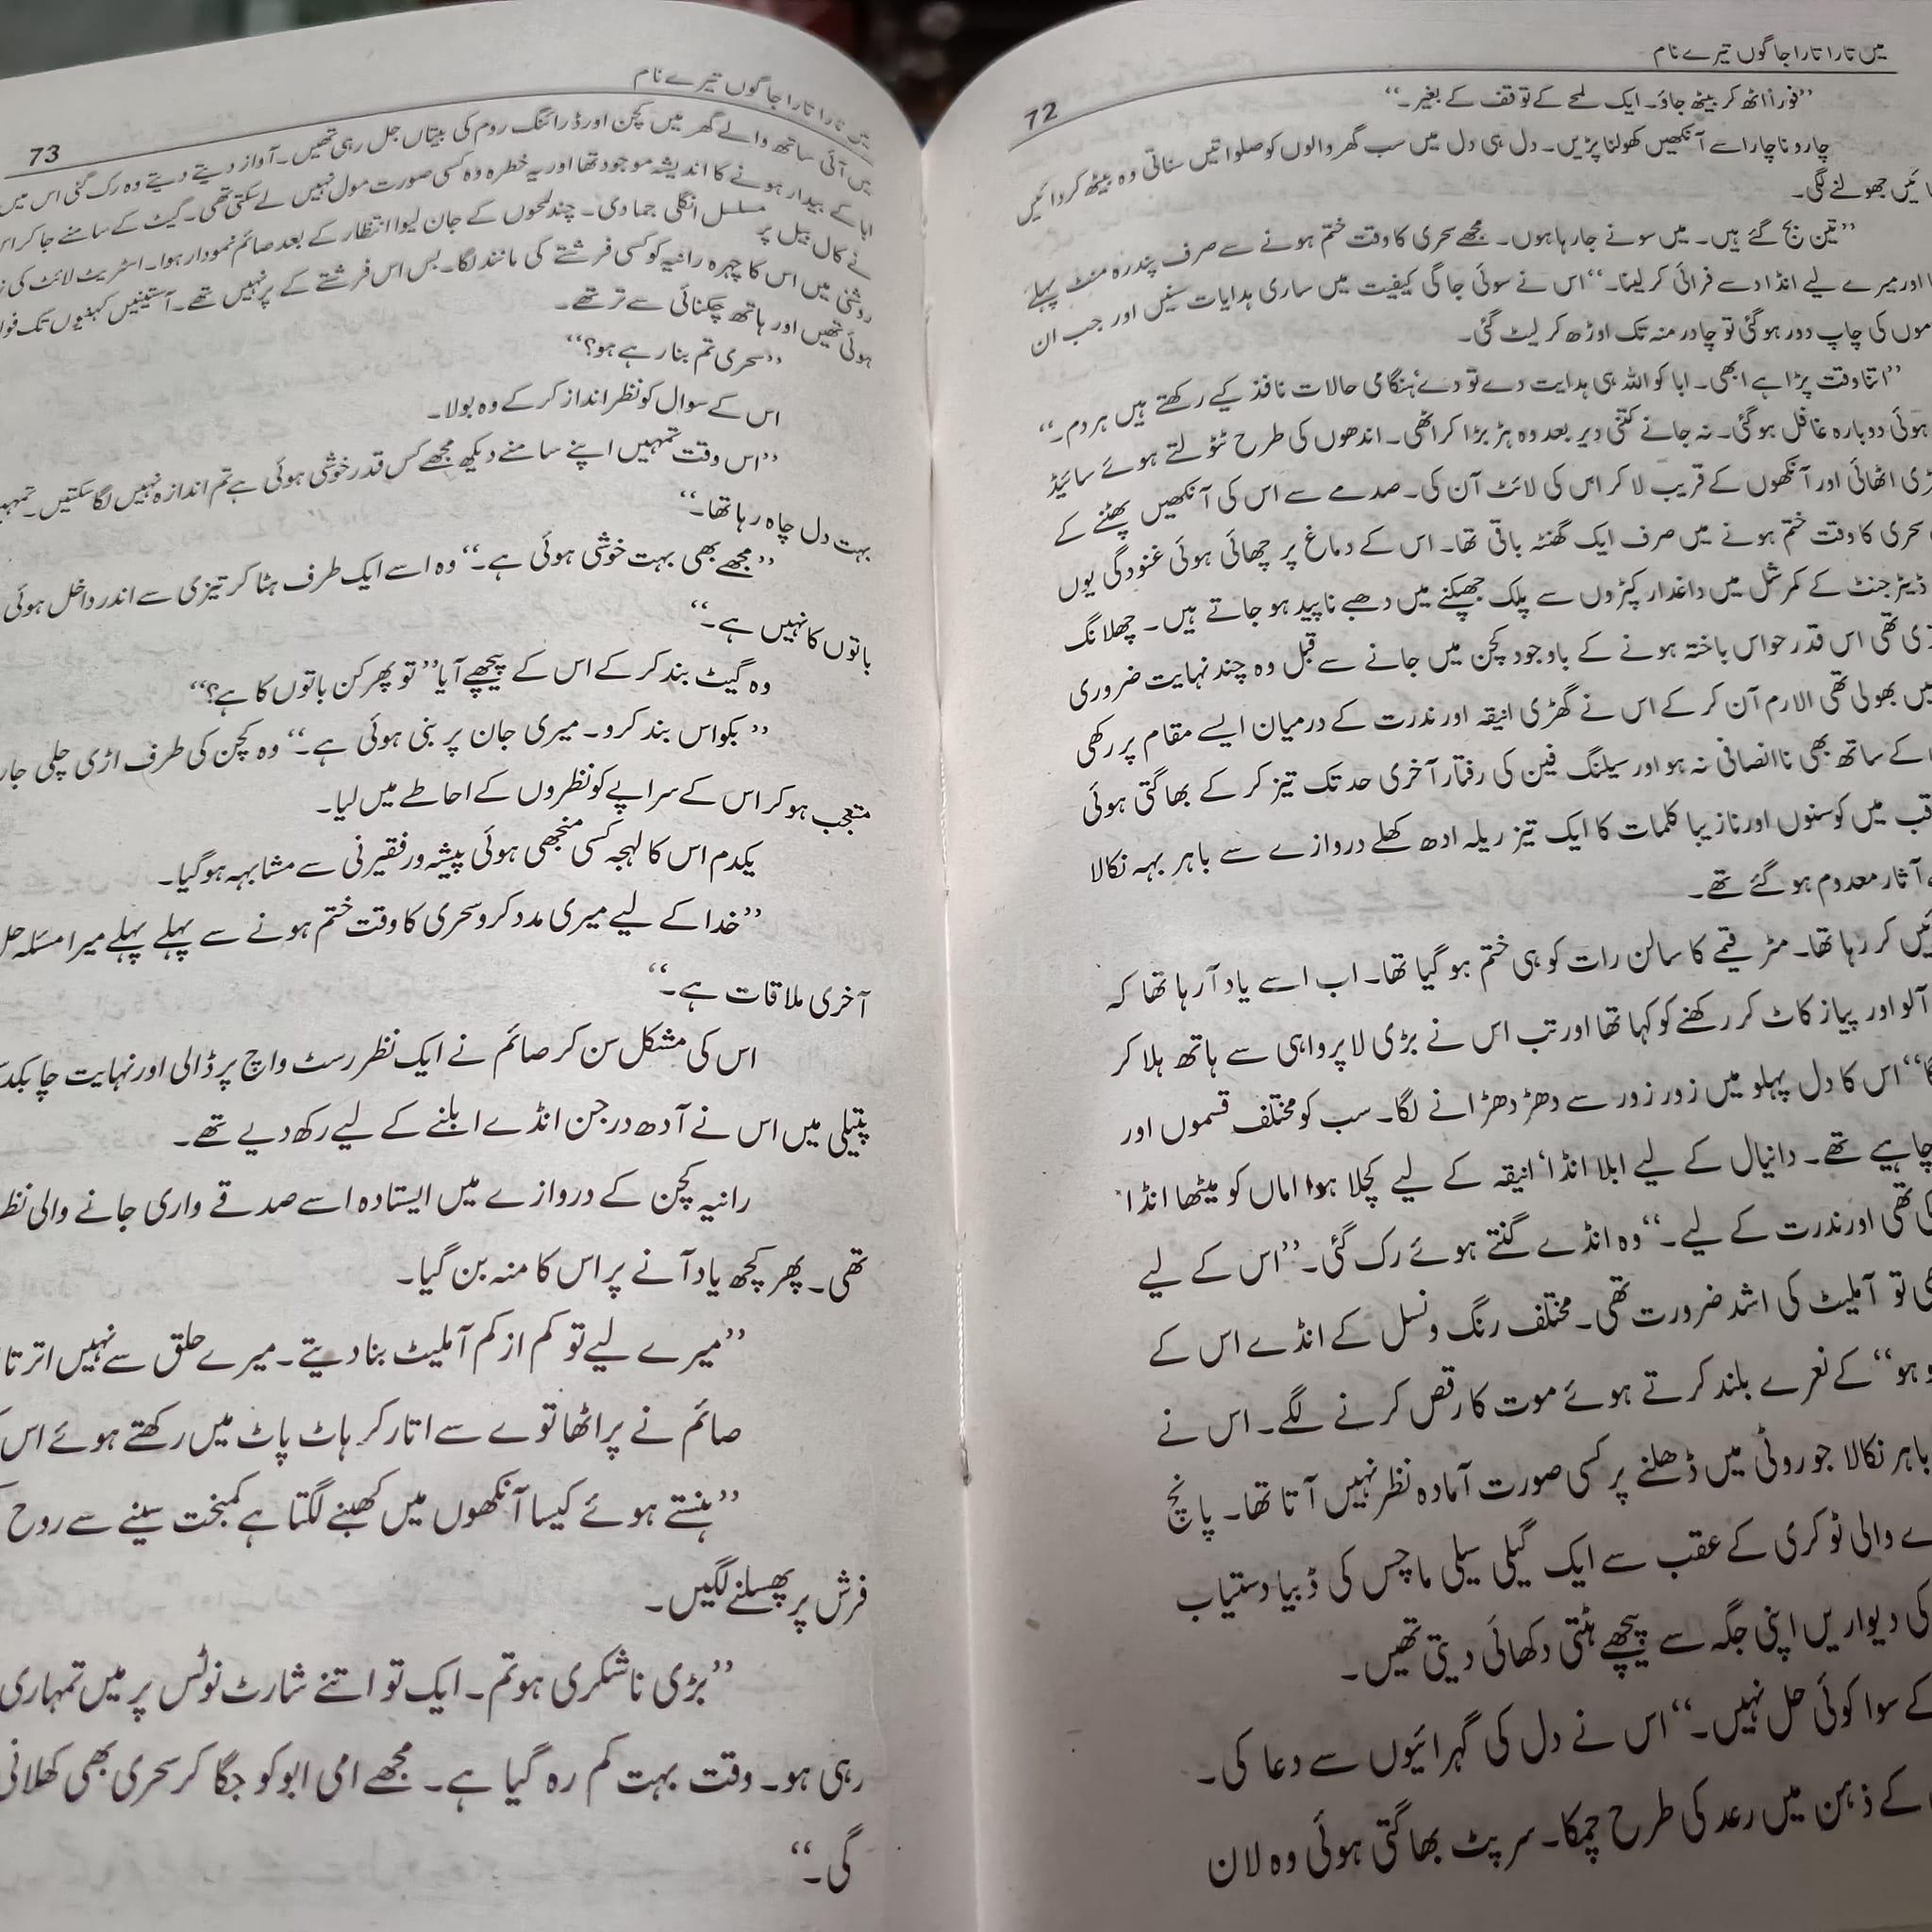 میں تارا تارا جاگوں تیرے نام
72
’’فوراً اٹھ کر بیٹھ جاؤ۔ ایک لمحے کے توقف کے بغیر۔‘‘
چاروناچار اسے آنکھیں کھولنا پڑیں۔ دل ہی دل میں سب گھر والوں کو صلواتیں سناتی وہ بیٹھ کر دائیں
جھولنے لگی۔
’’تین بج گئے ہیں۔ میں سونے جا رہا ہوں۔ مجھے سحری کا وقت ختم ہونے سے صرف پندرہ منٹ پہلے
اور میرے لیے انڈا دسے فرائی کر لینا۔‘‘ اس نے سوئی جاگی کیفیت میں ساری ہدایات سنیں اور جب ان
کی چاپ دور ہوگئی تو چادر منہ تک اوڑھ کر لیٹ گئی۔
’’اتنا وقت پڑا ہے ابھی۔ ابا کو اللہ ہی ہدایت دے تو دے‘ ہنگامی حالات نافذ کیے رکھتے ہیں ہر دم۔‘‘
ہوئی دوبارہ غافل ہوگئی۔ نہ جانے کتنی دیر بعد وہ ہڑبڑا کر اٹھی۔ اندھوں کی طرح ٹٹولتے ہوئے سائیڈ
اٹھائی اور آنکھوں کے قریب لا کر اس کی لائٹ آن کی۔ صدمے سے اس کی آنکھیں پھٹنے کے
سحری کا وقت ختم ہونے میں صرف ایک گھنٹہ باقی تھا۔ اس کے دماغ پر چھائی ہوئی غنودگی یوں
ڈیٹرجنٹ کے کمرشل میں داغدار کپڑوں سے پلک جھپکنے میں دھبے ناپید ہو جاتے ہیں۔ چھلانگ
تھی اس قدر حواس باختہ ہونے کے باوجود کچن میں جانے سے قبل وہ چند نہایت ضروری
بھولی تھی الارم آن کر کے اس نے گھڑی انیقہ اور ندرت کے درمیان ایسے مقام پر رکھی
کے ساتھ بھی ناانصافی نہ ہو اور سیلنگ فین کی رفتار آخری حد تک تیز کر کے بھاگتی ہوئی
میں کوسنوں اور نازیبا کلمات کا ایک تیز ریلہ ادھ کھلے دروازے سے باہر بہہ نکالا
آثار معدوم ہو گئے تھے۔
کر رہا تھا۔ مٹر قیمے کا سالن رات کو ہی ختم ہو گیا تھا۔ اب اسے یاد آ رہا تھا کہ
آلو اور پیاز کاٹ کر رکھنے کو کہا تھا اور تب اس نے بڑی لاپرواہی سے ہاتھ ہلا کر
‘‘ اس کا دل پہلو میں زور زور سے دھڑ دھڑانے لگا۔ سب کو مختلف قسموں اور
چاہیے تھے۔ دانیال کے لیے ابلا انڈا‘ انیقہ کے لیے کچلا ہوا اماں کو میٹھا انڈا‘
تھی اور ندرت کے لیے۔‘‘ وہ انڈے گنتے ہوئے رک گئی۔ ’’اس کے لیے
تو آملیٹ کی اشد ضرورت تھی۔ مختلف رنگ و نسل کے انڈے اس کے
ہو‘‘ کے نعرے بلند کرتے ہوئے موت کا رقص کرنے لگے۔ اس نے
باہر نکالا جو روٹی میں ڈھلنے پر کسی صورت آمادہ نظر نہیں آتا تھا۔ پانچ
والی ٹوکری کے عقب سے ایک گیلی سیلی ماچس کی ڈبیا دستیاب
کی دیواریں اپنی جگہ سے پیچھے ہٹتی دکھائی دیتی تھیں۔
کے سوا کوئی حل نہیں۔‘‘ اس نے دل کی گہرائیوں سے دعا کی۔
کے ذہن میں رعد کی طرح چمکا۔ سرپٹ بھاگتی ہوئی وہ لان
میں تارا تارا جاگوں تیرے نام
73
میں آئی ساتھ والے گھر میں کچن اور ڈرائنگ روم کی بتیاں جل رہی تھیں۔ آواز دیتے دیتے وہ رک گئی اس میں
ابا کے بیدار ہونے کا اندیشہ موجود تھا اور یہ خطرہ وہ کسی صورت مول نہیں لے سکتی تھی۔ گیٹ کے سامنے جا کر اس
نے کال بیل پر مسلسل انگلی جما دی۔ چند لمحوں کے جان لیوا انتظار کے بعد صائم نمودار ہوا۔ اسٹریٹ لائٹ کی
روشنی میں اس کا چہرہ رانیہ کو کسی فرشتے کی مانند لگا۔ بس اس فرشتے کے پر نہیں تھے۔ آستینیں کہنیوں تک
ہوئی تھیں اور ہاتھ چکنائی سے تر تھے۔
’’سحری تم بنا رہے ہو؟‘‘
اس کے سوال کو نظر انداز کر کے وہ بولا۔
’’اس وقت تمہیں اپنے سامنے دیکھ مجھے کس قدر خوشی ہوئی ہے تم اندازہ نہیں لگا سکتیں۔
بہت دل چاہ رہا تھا۔‘‘
’’مجھے بھی بہت خوشی ہوئی ہے۔‘‘ وہ اسے ایک طرف ہٹا کر تیزی سے اندر داخل ہوئی
باتوں کا نہیں ہے۔‘‘
وہ گیٹ بند کر کے اس کے پیچھے آیا ’’تو پھر کن باتوں کا ہے؟‘‘
’’بکواس بند کرو۔ میری جان پر بنی ہوئی ہے۔‘‘ وہ کچن کی طرف اڑی چلی
متعجب ہو کر اس کے سراپے کو نظروں کے احاطے میں لیا۔
یکدم اس کا لہجہ کسی منجھی ہوئی پیشہ ور فقیرنی سے مشابہہ ہو گیا۔
’’خدا کے لیے میری مدد کرو سحری کا وقت ختم ہونے سے پہلے پہلے میرا مسئلہ حل
آخری ملاقات ہے۔‘‘
اس کی مشکل سن کر صائم نے ایک نظر رسٹ واچ پر ڈالی اور نہایت
پتیلی میں اس نے آدھ درجن انڈے ابلنے کے لیے رکھ دیے تھے۔
رانیہ کچن کے دروازے میں ایستادہ اسے صدقے واری جانے والی
تھی۔ پھر کچھ یاد آنے پر اس کا منہ بن گیا۔
’’میرے لیے تو کم از کم آملیٹ بنا دیتے۔ میرے حلق سے نہیں اترتا
صائم نے پراٹھا توے سے اتار کر ہاٹ پاٹ میں رکھتے ہوئے اس
’’ہنستے ہوئے کیسا آنکھوں میں کھبنے لگتا ہے کمبخت سینے سے روح
فرش پر پھسلنے لگیں۔
’’بڑی ناشکری ہو تم۔ ایک تو اتنے شارٹ نوٹس پر میں تمہاری
رہی ہو۔ وقت بہت کم رہ گیا ہے۔ مجھے امی ابو کو جگا کر سحری بھی کھلانی
گی۔‘‘